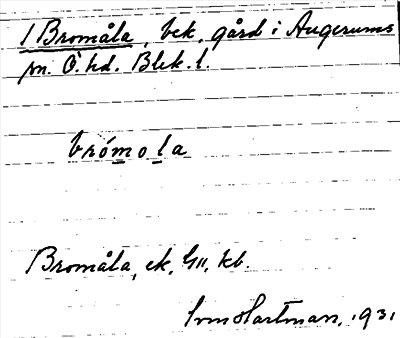 1 Bromåla, bek. gård i Augerums
sn. Ö. hd. Blek. l.
brómola
Bromåla, ek, G11, kb.
Hartman, 1931